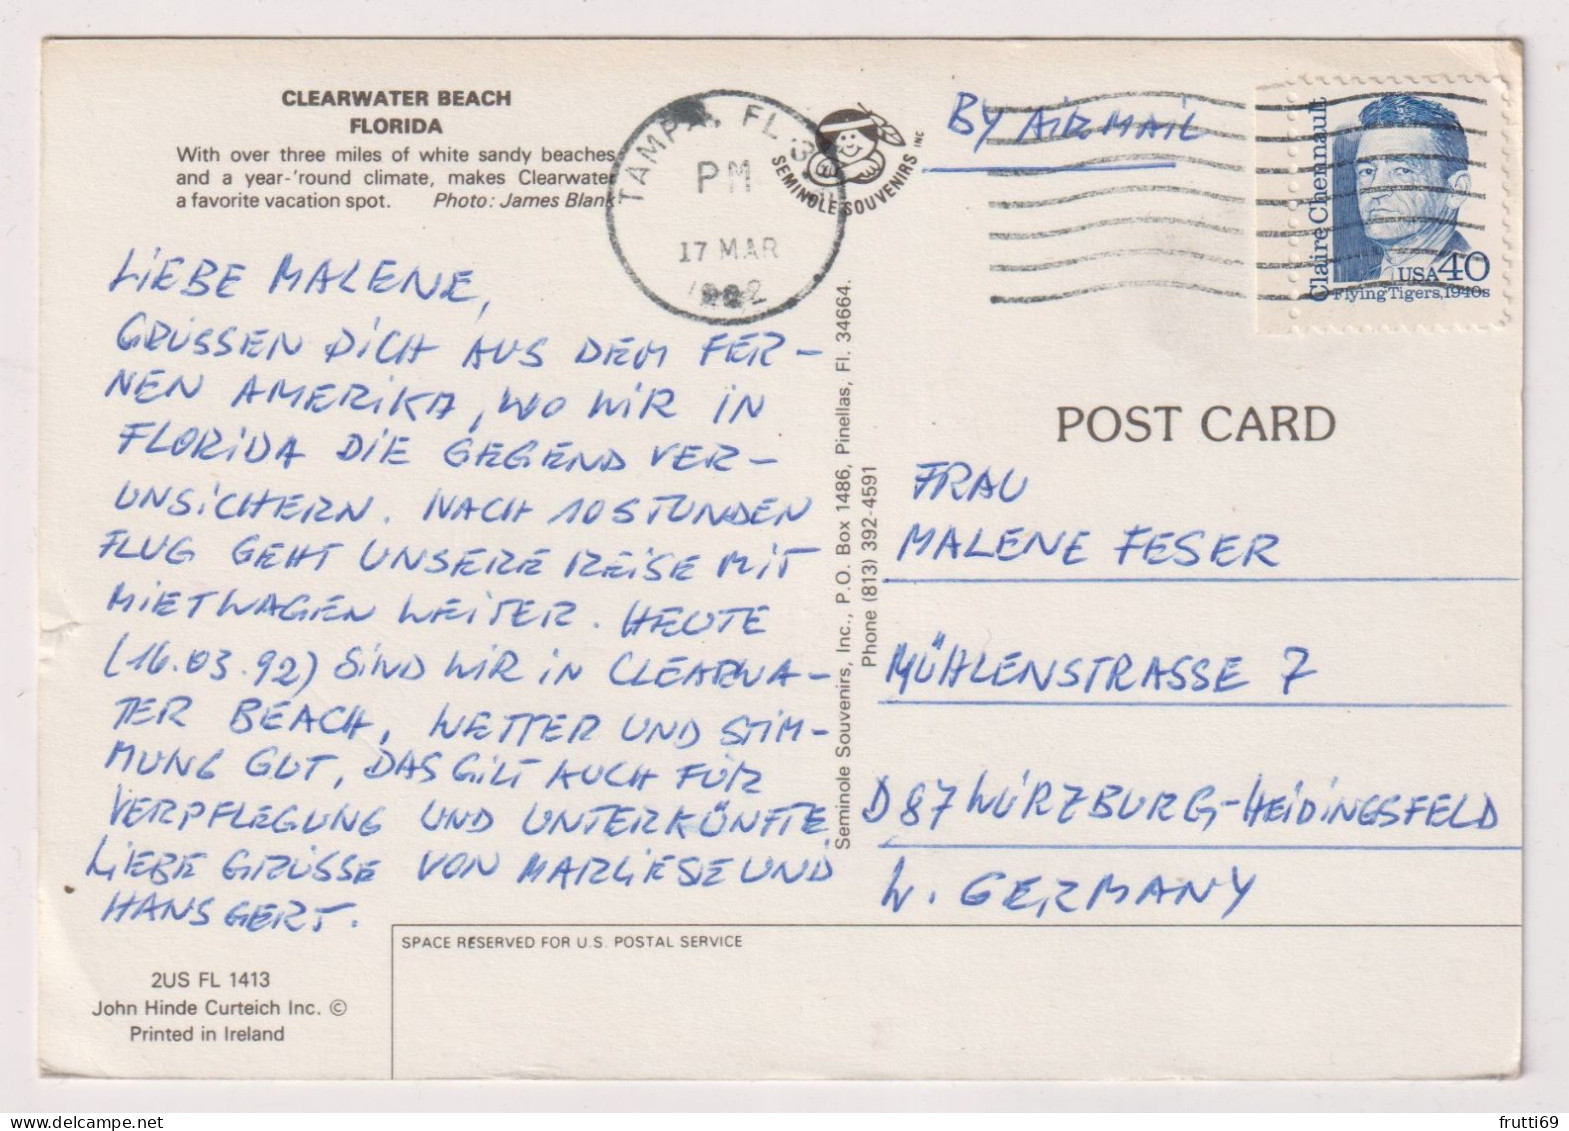 CLEARWATER BEACH
FLORIDA
With over three miles of white sandy beaches
and a year-'round climate, makes Clearwater
a favorite vacation spot. Photo: James Blank
LIEBE MALENE,
GRÜSSEN DICH AUS DEM FER-
NEN AMERIKA, WO WIR IN
FLORIDA DIE GEGEND VER-
UNSICHERN. NACH 10 STUNDEN
FLUG GEHT UNSERE REISE MIT
MIETWAGEN WEITER. HEUTE
(16.03.92) SIND WIR IN CLEARWA-
TER BEACH, WETTER UND STIM-
MUNG GUT, DAS GILT AUCH FÜR
VERPFLEGUNG UND UNTERKÜNFTE
LIEBE GRÜSSE VON MARLIESE UND
HANS GERT.
2US FL 1413
John Hinde Curteich Inc. ©
Printed in Ireland
TAMPA, FL
PM
17 MAR
SEMINOLE SOUVENIRS INC
Seminole Souvenirs, Inc., P.O. Box 1486, Pinellas, Fl. 34664.
Phone (813) 392-4591
BY AIRMAIL
Claire Chennault
USA 40
Flying Tigers, 1940s
POST CARD
FRAU
MALENE FESER
MÜHLENSTRASSE 7
D 87 WÜRZBURG-HEIDINGSFELD
W. GERMANY
SPACE RESERVED FOR U.S. POSTAL SERVICE
frutti69